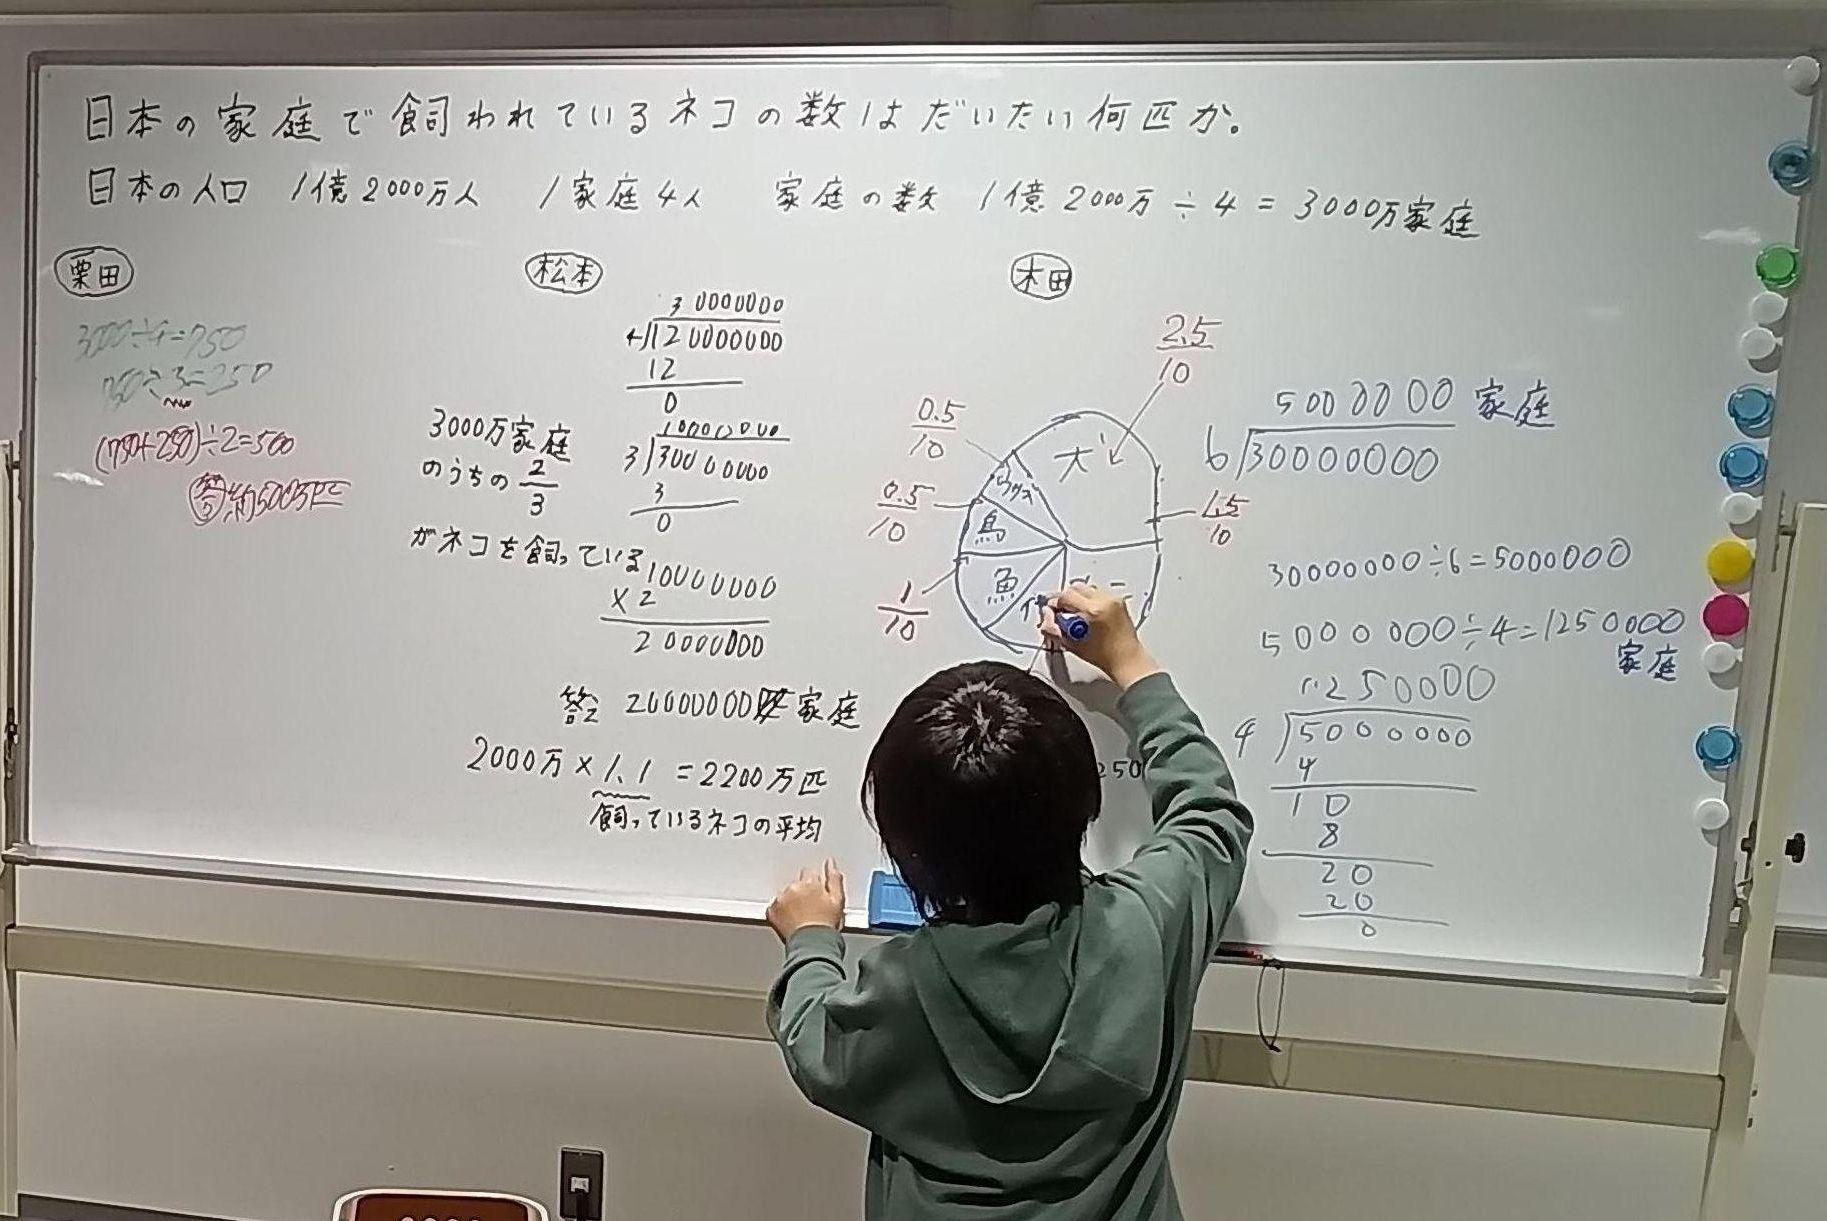 日本の家庭で飼われているネコの数はだいたい何匹か。
日本の人口 1億2000万人 1家庭4人 家庭の数 1億2000万÷4=3000万家庭
栗田
3000÷4=750
750÷3=250
(750+250)÷2=500
答 約500万匹
松本
30000000
4)120000000
12
0
3000万家庭
のうちの2/3
がネコを飼っている
10000000
3)30000000
3
0
10000000
×2
20000000
答え 20000000家庭
2000万×1.1=2200万匹
飼っているネコの平均
本田
2.5/10
0.5/10
0.5/10
1/10
1.5/10
犬
ウサギ
鳥
魚
250
5000000 家庭
6)30000000
30000000÷6=5000000
5000000÷4=1250000
家庭
1250000
4)5000000
4
10
8
20
20
0